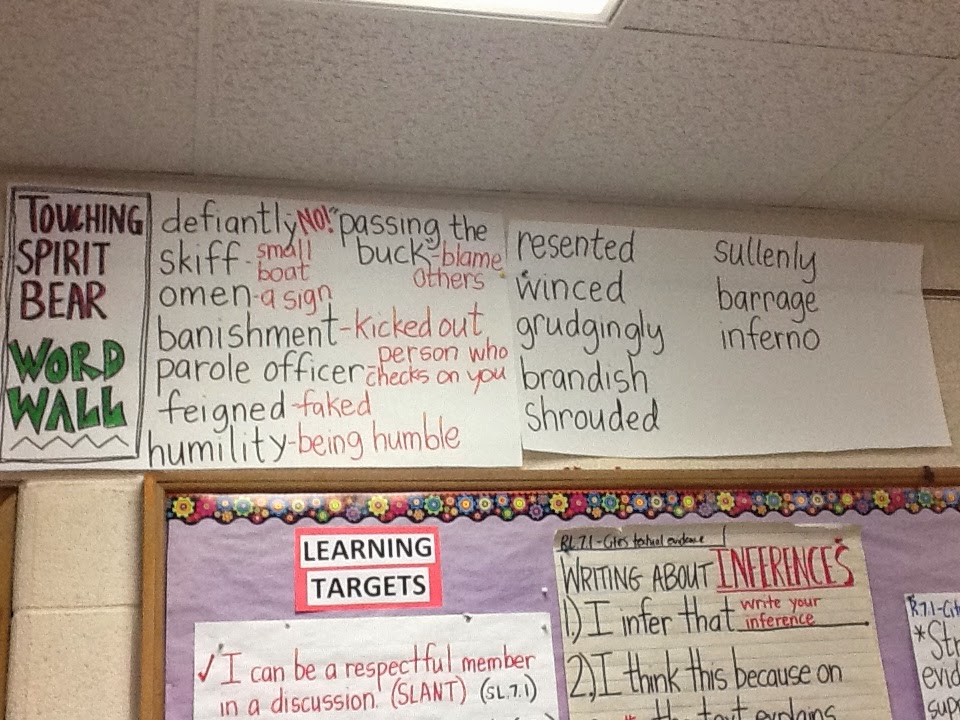 TOUCHING
SPIRIT
BEAR
WORD
WALL
defiantly NO!"
skiff - small
boat
omen - a sign
banishment - kicked out
parole officer - person who
checks on you
feigned - faked
humility - being humble
passing the
buck - blame
others
resented
winced
grudgingly
brandish
shrouded
sullenly
barrage
inferno
LEARNING
TARGETS
✓ I can be a respectful member
in a discussion. (SLANT) (SL.7.1)
RL.7.1 - Cites textual evidence
WRITING ABOUT INFERENCES
1.) I infer that write your
inference
2.) I think this because on
the text explains
7.1 -
*